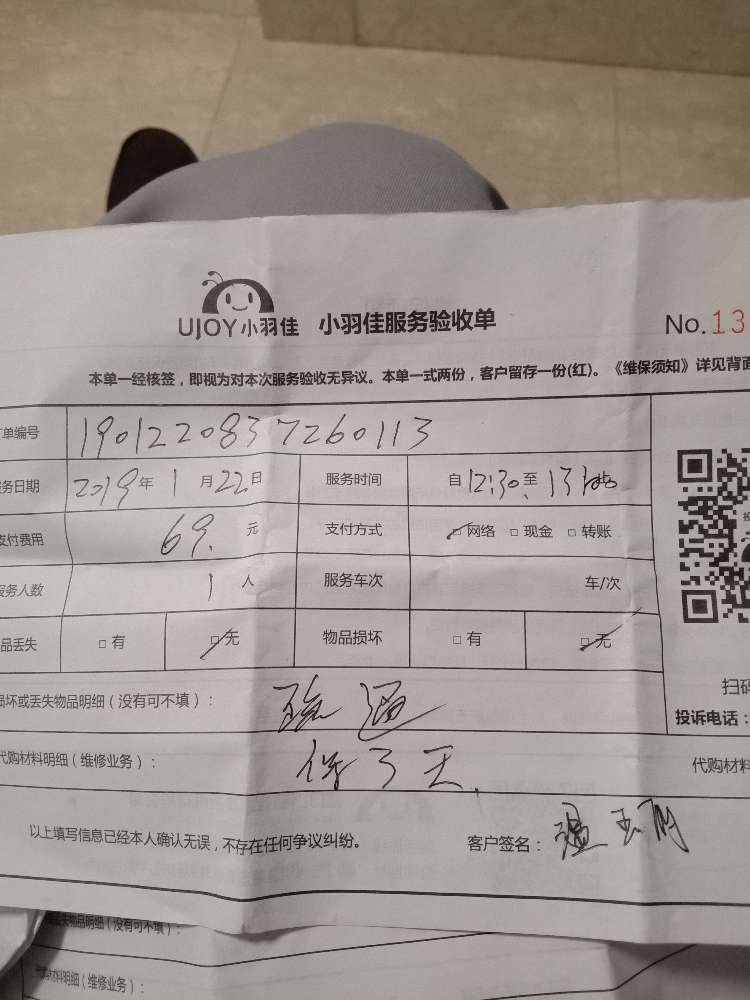 UJOY小羽佳 小羽佳服务验收单
No.13
本单一经核签，即视为对本次服务验收无异议。本单一式两份，客户留存一份(红)。《维保须知》详见背面
单编号 1901220837260113
务日期 2019年 1月22日 服务时间 自12:30至
支付费用 69. 元 支付方式 □网络 □现金 □转账
服务人数 1人 服务车次 车/次
品丢失 □有 □无 物品损坏 □有 □无
扫码
损坏或丢失物品明细（没有可不填）： 疏通
投诉电话：
代购材料明细（维修业务）： 保3天. 代购材料
以上填写信息已经本人确认无误，不存在任何争议纠纷。 客户签名：
丢失物品明细（没有可不填）：
材料明细（维修业务）：